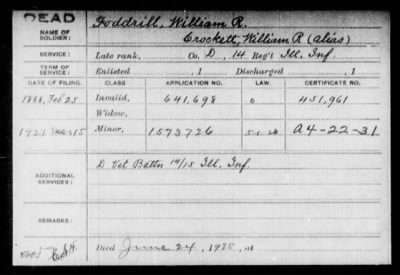 DEAD
NAME OF SOLDIER: Foddrill, William R.
Crockett, William R (alias)
SERVICE: Late rank, Co. D, 14 Reg't Ill. Inf.
TERM OF SERVICE: Enlisted , 1 Discharged , 1
DATE OF FILING. CLASS APPLICATION NO. LAW. CERTIFICATE NO.
1888, Feb 25 Invalid, 641,698 451,961
Widow,
Mar 15 Minor, 1573726 A4-22-31
ADDITIONAL SERVICES: D Vet Battn 14/15 Ill. Inf.
REMARKS:
Died June 24, 1925, at